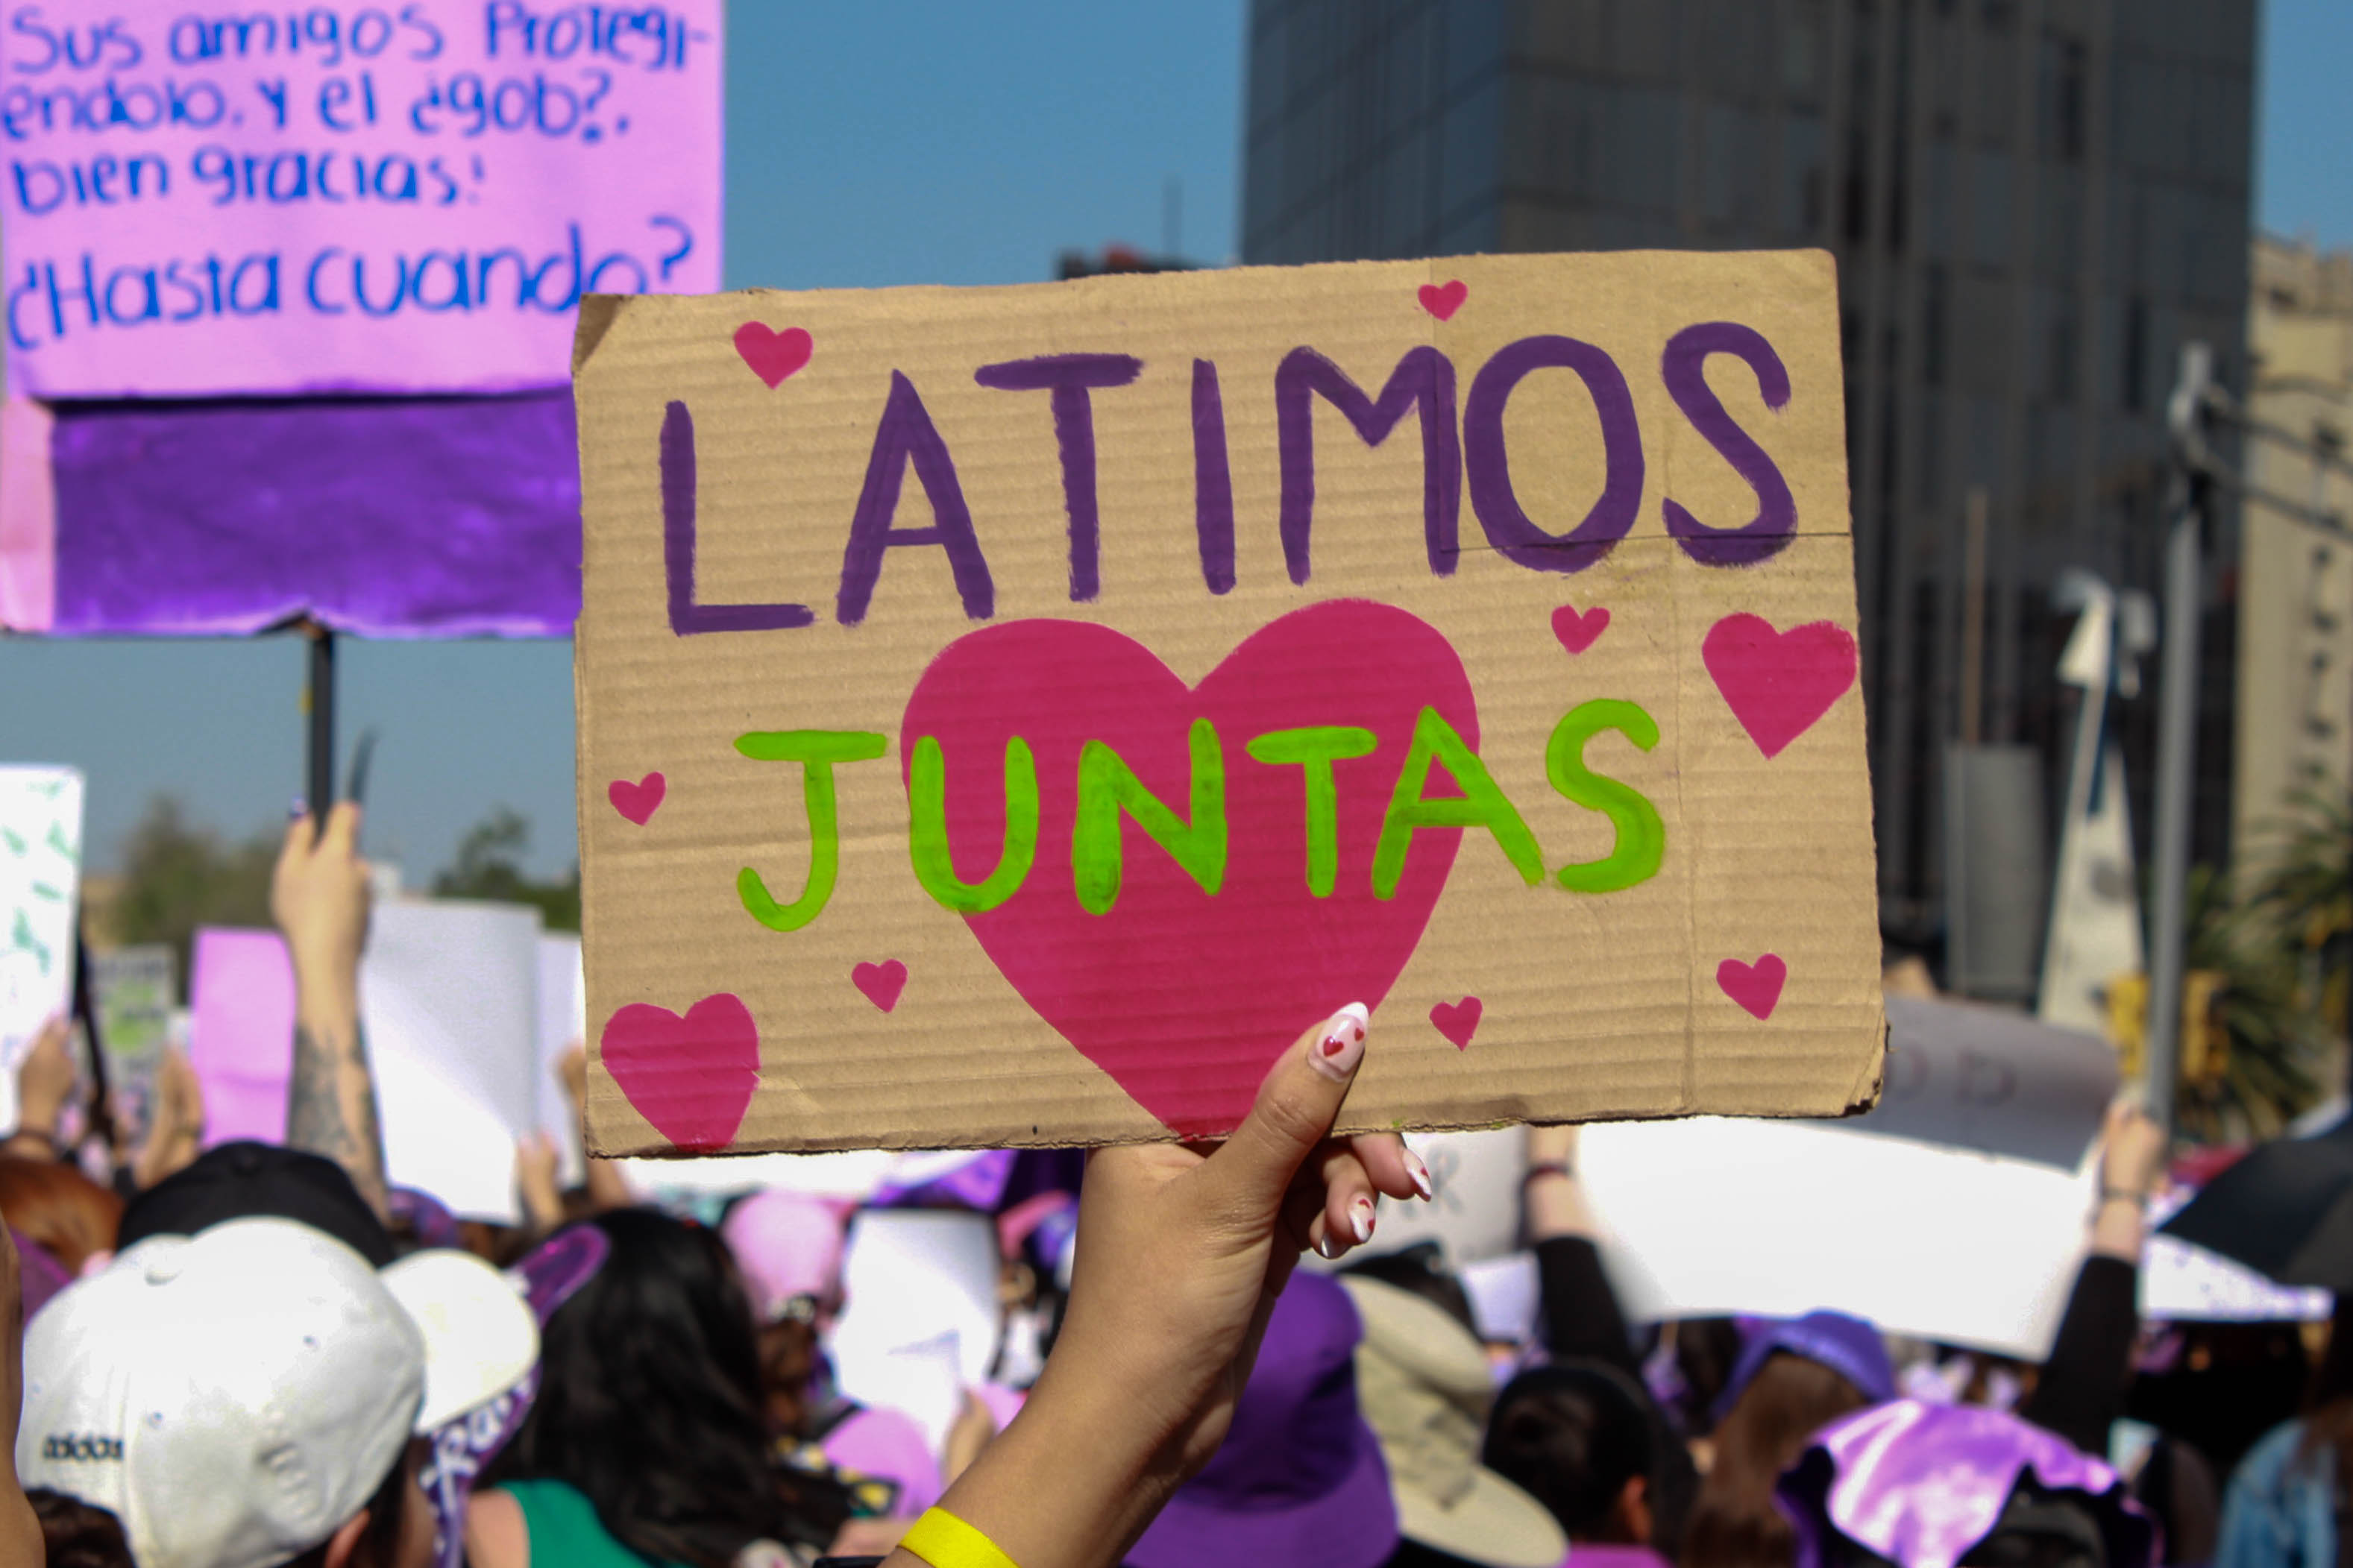 Sus amigos Protegi-
éndolo. y el ¿gob?.
bien gracias!
¿Hasta cuando?
LATIMOS
JUNTAS
adidas